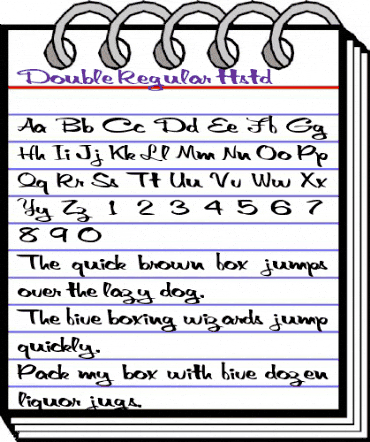 Double Regular Hstd
Aa Bb Cc Dd Ee Ff Gg
Hh Ii Jj Kk Ll Mm Nn Oo Pp
Qq Rr Ss Tt Uu Vv Ww Xx
Yy Zz 1 2 3 4 5 6 7
8 9 0
The quick brown fox jumps
over the lazy dog.
The five boxing wizards jump
quickly.
Pack my box with five dozen
liquor jugs.